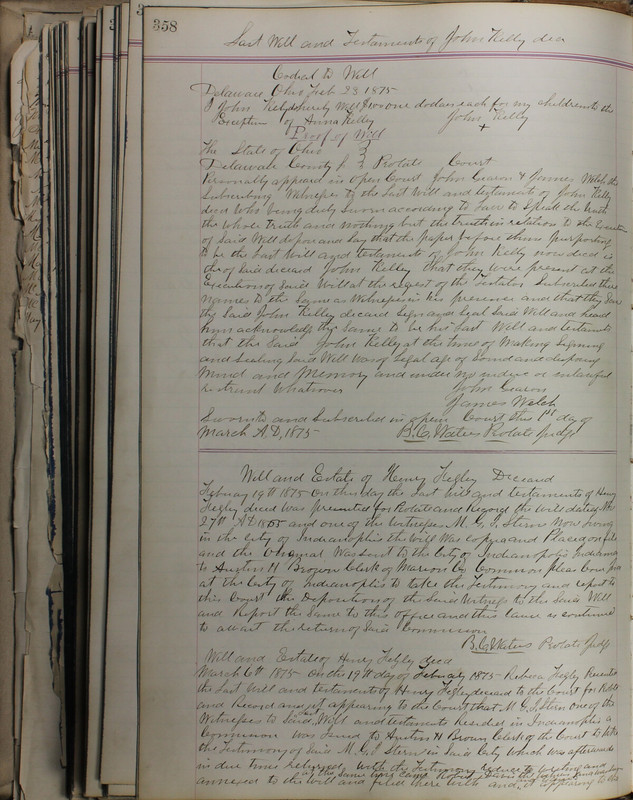 358
Last Will and Testament of John Kelly decd
Codicil to Will
Delaware Ohio Feb 23 1875
I John Kelly hereby Will one dollar each for my children with the
Exception of Anna Kelly John Kelly
+
Proof of Will
The State of Ohio
Delaware County Probate Court
Personally appeared in open Court John & James Welch the
Subscribing Witnesses to the Last Will and testament of John Kelly
decd Who being duly Sworn according to Law to Speak the truth
the whole truth and nothing but the truth in relation to the Execution
of said Will depose and Say that the paper before them purporting
to be the Last Will and testament of John Kelly now decd is
the of said deceased John Kelly that they were present at the
Execution of said Will at the request of the Testator Subscribed their
names to the Same as Witnesses in his presence and that they Saw
the Said John Kelly deceased Sign and Seal Said Will and heard
him acknowledge the Same to be his Last Will and testament
that the said John Kelly at the time of Making Signing
and Sealing Said Will was of Legal age of Sound and disposing
Mind and Memory and under no undue or unlawful
restraint Whatever John
James Welch
Sworn to and Subscribed in open Court this 1st day of
March A.D. 1875 B.C. Waters Probate Judge
Will and Estate of Henry Hegly Deceased
February 19th 1875 On this day the Last Will and testament of Henry
Hegly decd was presented for Probate and Record the Will dated
27th AD 1855 and one of the Witnesses M. G. I. Stern Now living
in the City of Indianapolis the Will Was copied and Placed on file
and the Original Was sent to the City of Indianapolis Indiana
to Austin H Brown Clerk of Marion Co Common pleas Court
at the City of Indianapolis to take the Testimony and report to
this Court the Deposition of the Said Witness to the Said Will
and Report the Same to this Office and this Cause is continued
to await the return of Said Commission
B.C. Waters Probate Judge
Will and Estate of Henry Hegly decd
March 6th 1875 On the 19th day of February 1875 Rebeca Hegly Presented
the Last Will and testament of Henry Hegly deceased to the Court for Probate
and Record and yet appearing to the Court that M. G. I. Stern one of the
Witnesses to Said Will and testament Resided in Indianapolis a
Commission was Issued to Austin H Brown Clerk of the Court to take
the Testimony of Said M. G. I Stern in Said City Which was afterwards
in due time returned with the Testimony reduced to writing and
annexed to the Will and filed here with and it appearing to the